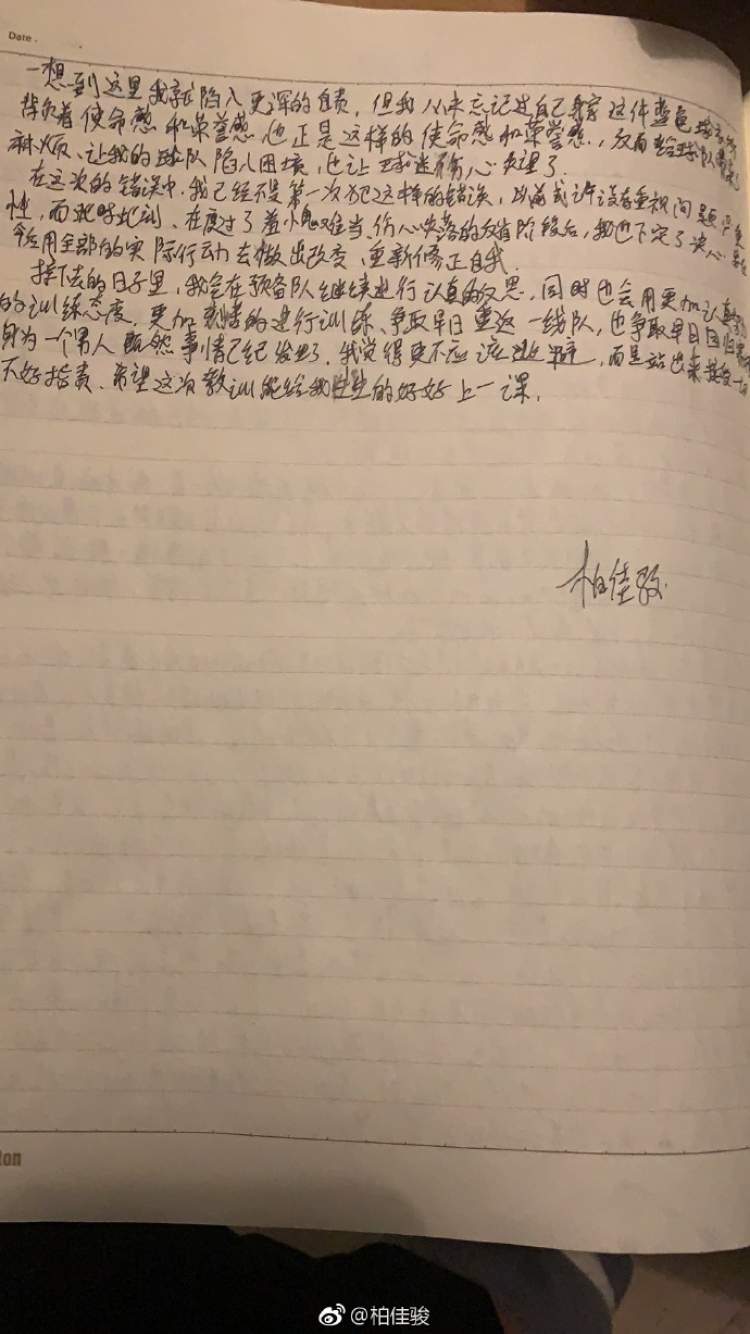 Date.
一想到这里我就陷入更深的自责，但我从未忘记过自己身穿这件蓝色球衣
背负着使命感和荣誉感，也正是这样的使命感和荣誉感，反而给球队带来
麻烦、让我的球队陷入困境，也让球迷们伤心失望了
在这次的错误中，我已经不是第一次犯这样的错误，以前或许没有重视问题严重
性，而此时此刻、在度过了羞愧难当、伤心失落的反省阶段后，我也下定了决心
今后用全部的实际行动去做出改变、重新修正自我.
接下去的日子里，我会在预备队继续进行认真的反思，同时也会用更加认真
的训练态度，更加刻苦的进行训练、争取早日重返一线队，也争取早日回归
身为一个男人既然事情已经发生了，我觉得更不应该逃避，而是站出来接受一切
不好指责、希望这次教训能给我生生的好好上一课，
柏佳骏
ton
@柏佳骏